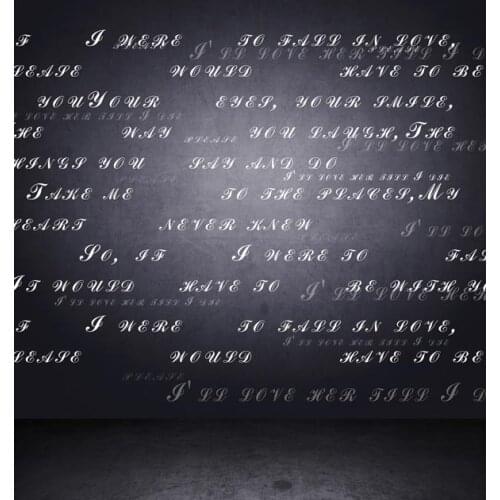 F I WERE TO FALL IN LOVE,
I'LL LOVE HER TILL I
PLEASE
LEASE WOULD HAVE TO BE
YOUYOUR EYES, YOUR SMILE,
LL LOVE HER TILL I DIE
HE WAY YOU LAUGH,THE
PLEASE
I'LL LOVE HER
HINGS YOU SAY AND DO
I'LL LOVE HER TILL I DIE
TAKE ME TO THE PLACES,MY
EART NEVER KNEW
I'LL LOVE HER
SO, IF I WERE TO FAL
IT WOULD HAVE TO BE WITH YO
I'LL LOVE HER
I'LL LOVE HER TILL I DIE
F I WERE TO FALL IN LOVE,
I'LL LOVE HER TILL I DIE
LEASE WOULD HAVE TO BE
PLEASE
I'LL LOVE HER TILL I D